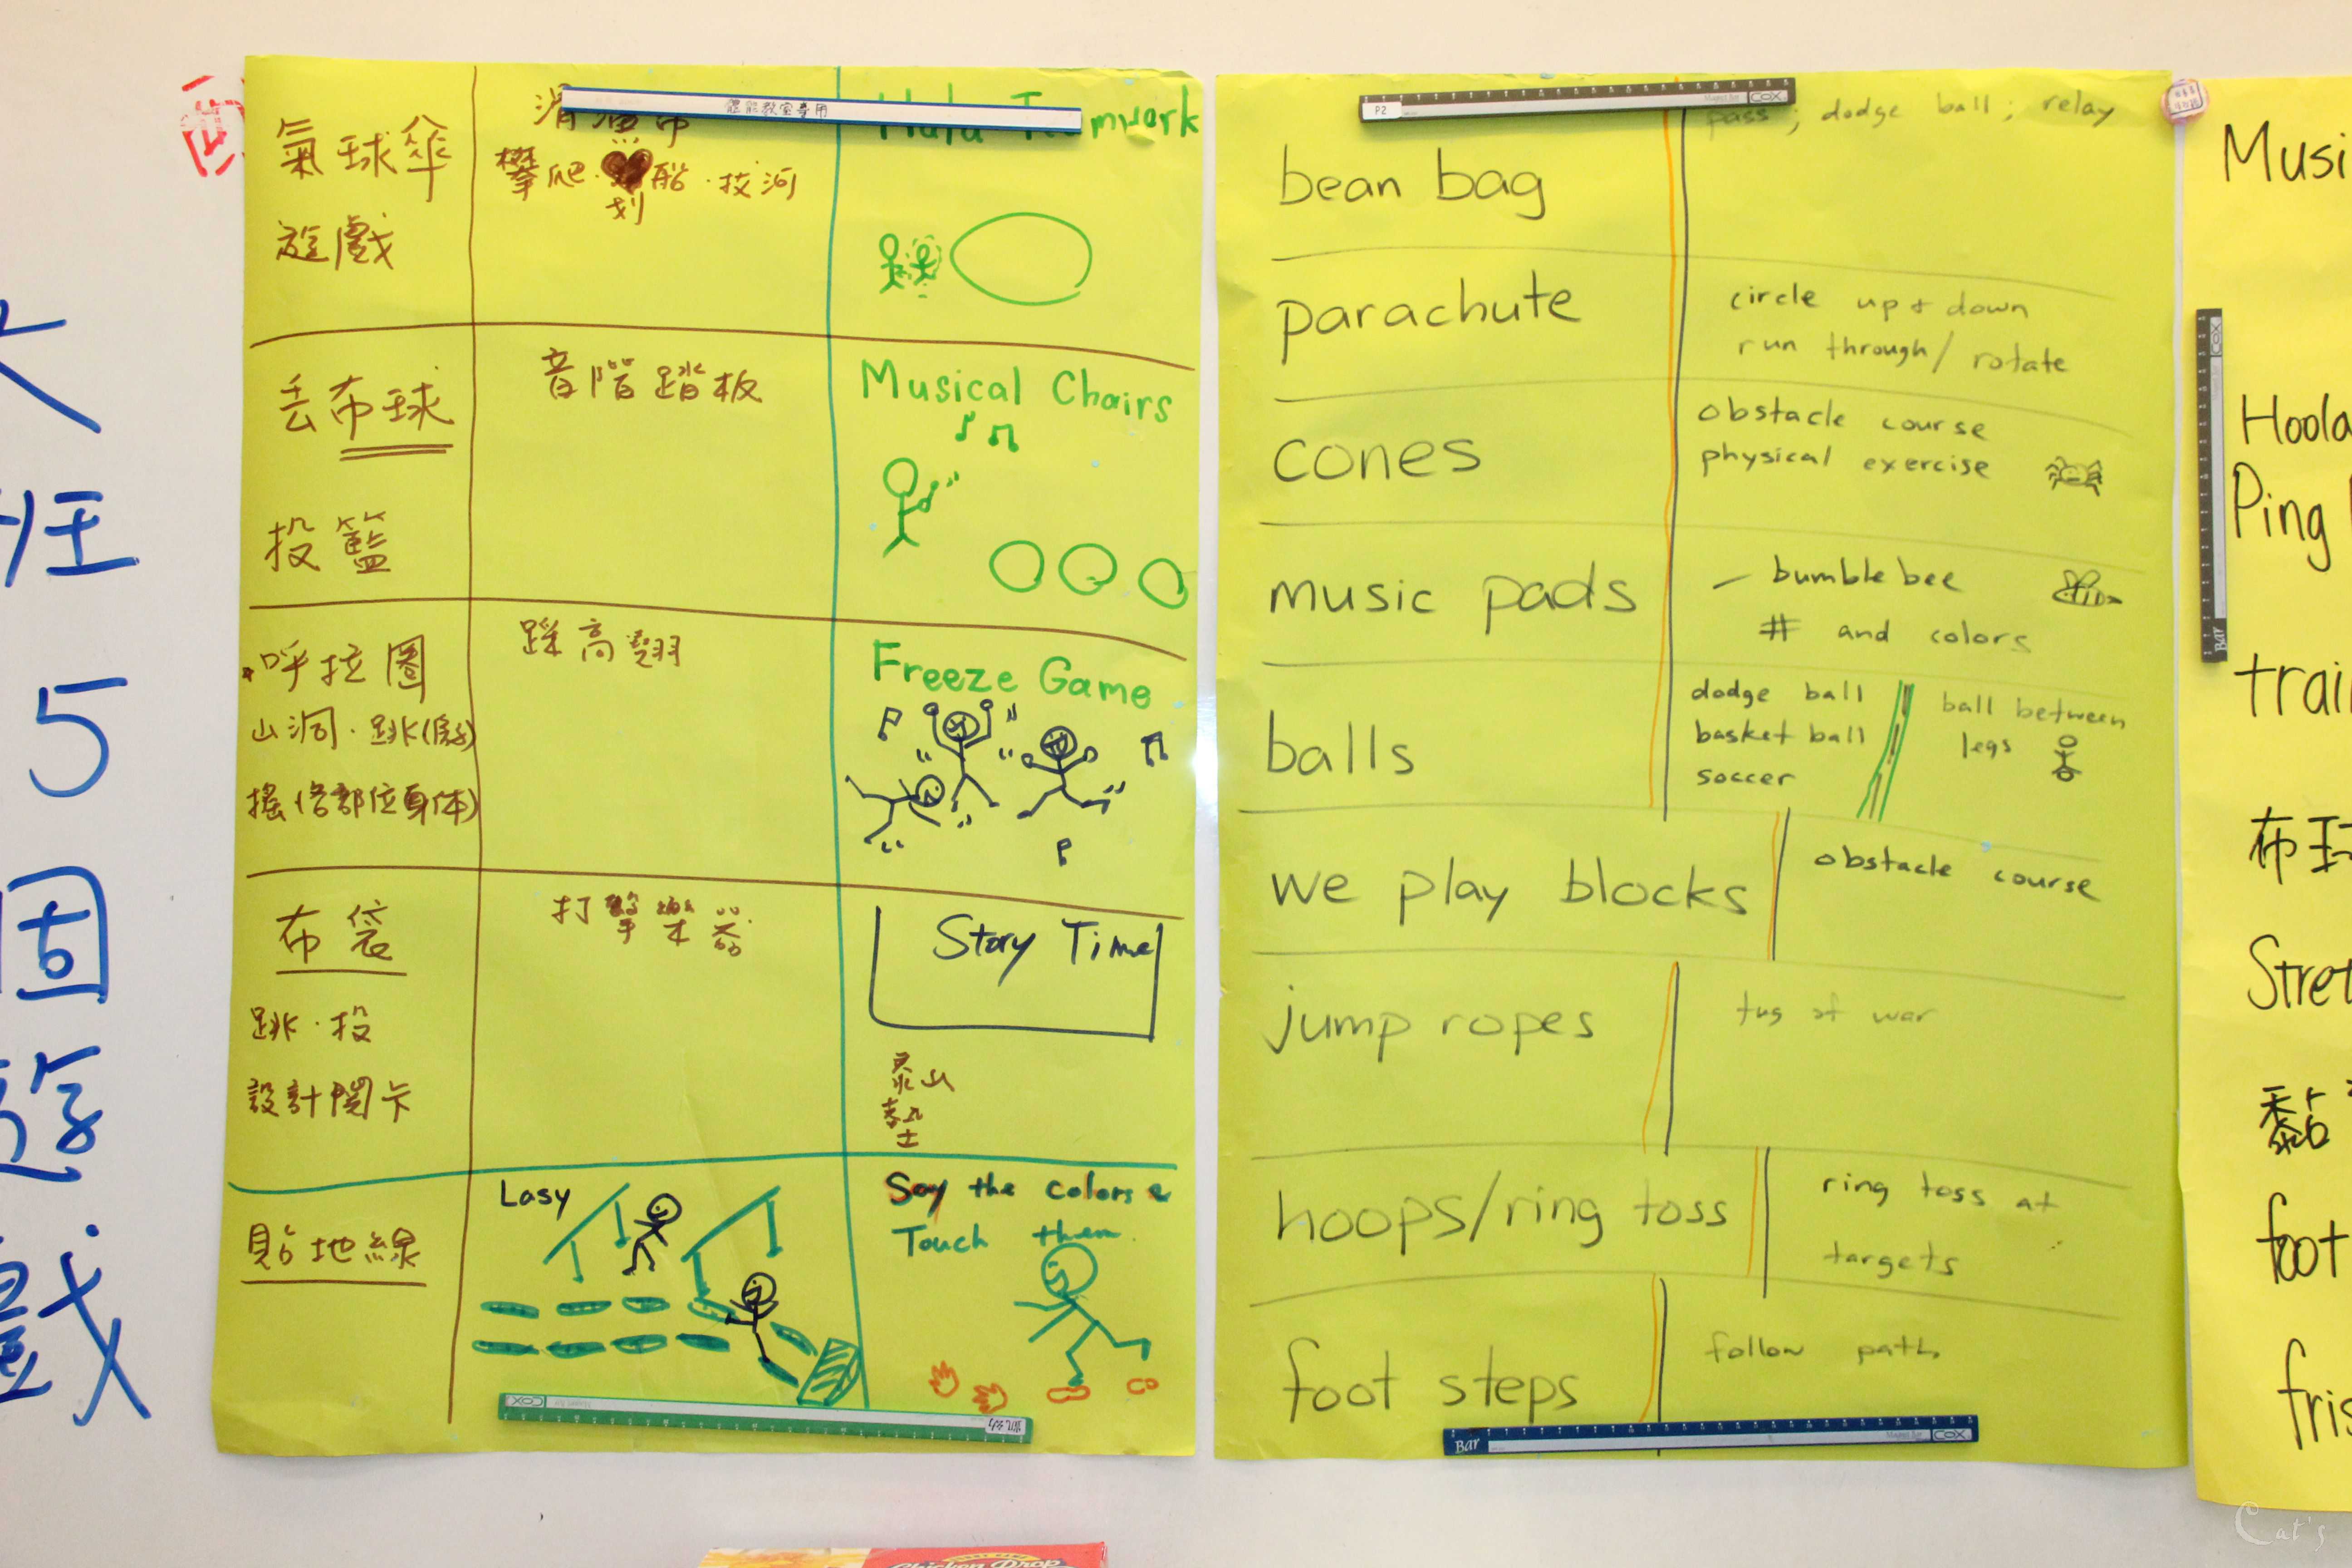 氣球傘
遊戲
滑
攀爬·
船·拔河
划
體能教室專用
Hula Teamwork
丟布球
投籃
音階踏板
Musical Chairs
呼拉圈
山洞·跳(房子)
搖(各部位身体)
踩高蹺
Freeze Game
布袋
跳·投
設計關卡
打擊樂器
Story Time
泰山
墊
貼地線
Lasy
Say the colors &
Touch them.
COX
P2
COX
pass; dodge ball; relay
bean bag
parachute
circle up + down
run through / rotate
cones
obstacle course
physical exercise
music pads
- bumble bee
# and colors
balls
dodge ball
basket ball
soccer
ball between
legs
we play blocks
obstacle course
jump ropes
tug of war
hoops/ring toss
ring toss at
targets
foot steps
follow path
Bar
COX
COX
Bar
Musi
Hoola
Ping
trai
布球
Stret
黏
foot
fris
班
5
固
遊
戲
Chicken Drop
Cat's